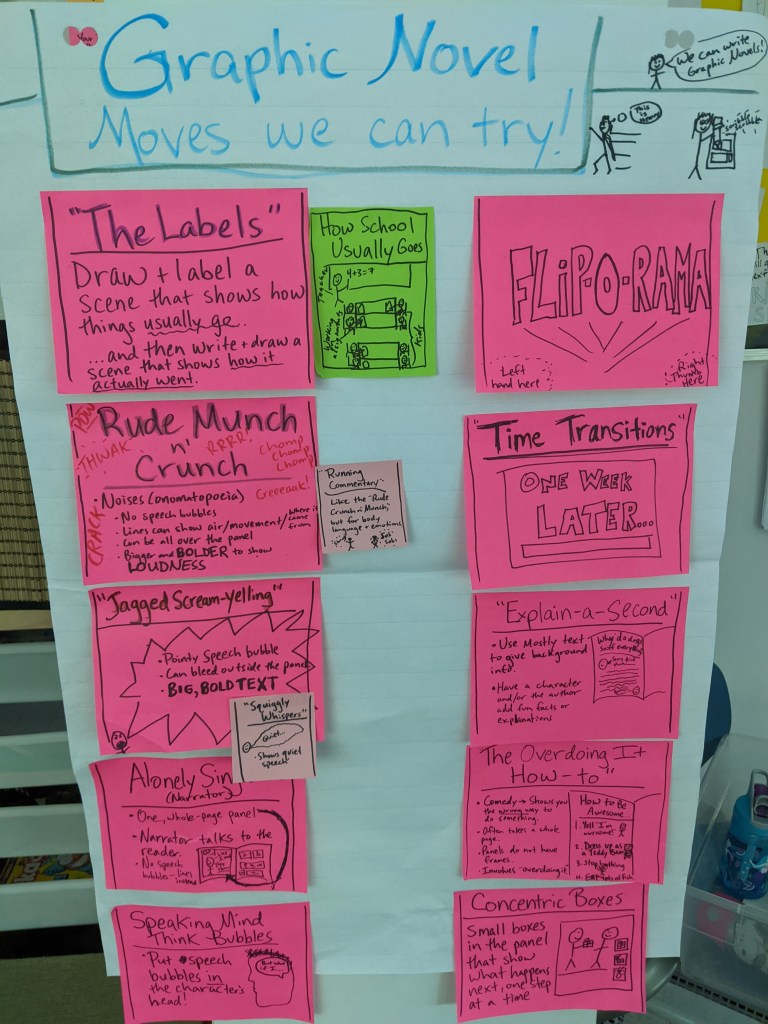 Graphic Novel
Moves we can try!
We can write
Graphic Novels!
This is
"The Labels"
Draw + label a
scene that shows how
things usually go.
...and then write + draw a
scene that shows how it
actually went.
How School
Usually Goes
Teacher
4+3=7
Working
Kids
FLIP-O-RAMA
Left
hand here
Right
Thumb
Here
Rude Munch
n' Crunch
POW
THWAK
RRRR!
chomp
chomp
chomp
Creeeaak!
CRACK
• Noises (onomatopoeia)
• No speech bubbles
• Lines can show air/movement/where it came from
• Can be all over the panel
• Bigger and BOLDER to show
LOUDNESS
Running
Commentary
Like the "Rude
Crunch n' Munch"
but for body
language + emotions
Sob
Sob
"Time Transitions"
ONE WEEK
LATER...
"Jagged Scream-yelling"
• Pointy speech bubble
• Can bleed outside the panel
• BIG, BOLD TEXT
"Squiggly
Whispers"
Quiet...
- Shows quiet
speech
"Explain-a-Second"
• Use Mostly text
to give background
info.
• Have a character
and/or the author
add fun facts or
explanations
Why do dogs
sniff everything
Alonely
(Narrator)
• One, whole-page panel
• Narrator talks to the
reader.
• No speech
bubbles - lines
instead
The Overdoing It
How-to"
• Comedy → Shows you
the wrong way to
do something.
• Often takes a whole
page.
• Panels do not have
frames.
• Involves "overdoing it"
How to Be
Awesome
1. Yell I'm
awesome!
2. Dress up as
a Teddy Bear
3. Stop bathing
4. Eat of fish
Speaking Mind
Think Bubbles
• Put speech
bubbles in
the character's
head!
Concentric Boxes
Small boxes
in the panel
that show
what happens
next, one step
at a time